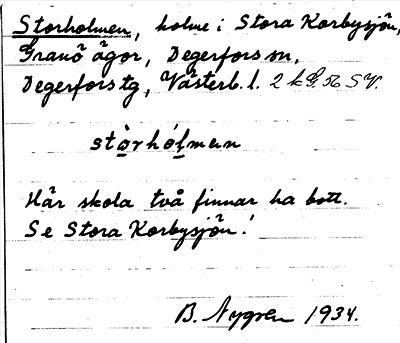 Storholmen, holme i Stora Korbysjön,
Granö ägor, Degerfors sn,
Degerfors tg, Västerb. l. 2 k G. 56 SV.
stòrhólmen
Här skola två finnar ha bott.
Se Stora Korbysjön!
B. Nygren 1934.